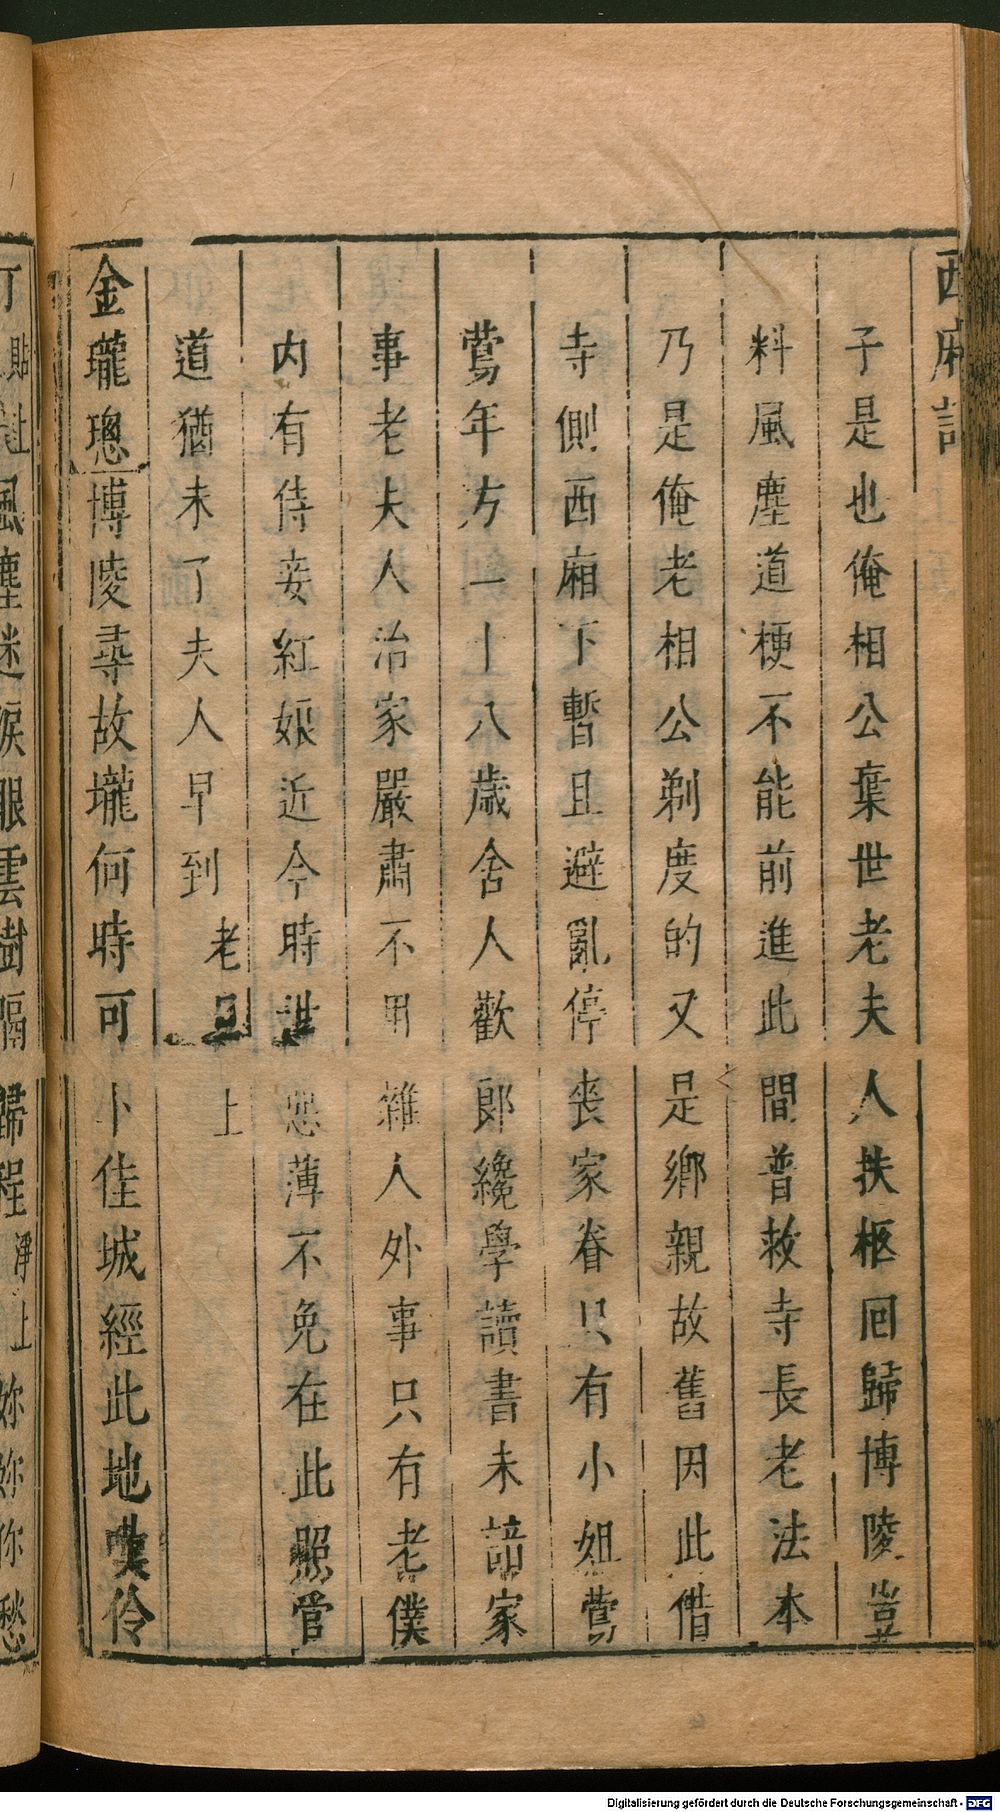 西廂記
子是也俺相公棄世老夫人扶柩回歸博陵豈
料風塵道梗不能前進此間普救寺長老法本
乃是俺老相公剃度的又是鄉親故舊因此借
寺側西廂下暫且避亂停喪家眷只有小姐鶯
鶯年方一十八歲舍人歡郎纔學讀書未諳家
事老夫人治家嚴肅不用雜人外事只有老僕
內有侍妾紅娘近今時世惡薄不免在此照管
道猶未了夫人早到 老旦上
金瓏璁 博陵尋故壠何時可卜佳城經此地嘆伶
仃 貼上 風塵迷淚眼雲樹隔歸程 淨上 妳妳你愁
Digitalisierung gefördert durch die Deutsche Forschungsgemeinschaft - DFG